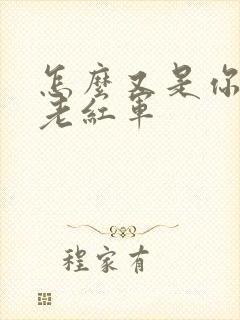 怎麼又是你
老紅軍
程家有